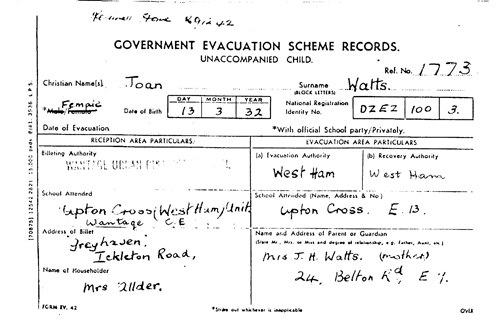 GOVERNMENT EVACUATION SCHEME RECORDS.
UNACCOMPANIED CHILD.
Ref. No. 1773
Christian Name(s) Joan Surname (BLOCK LETTERS) Watts.
*Male/Female Date of Birth DAY 13 MONTH 3 YEAR 32 National Registration Identity No. DZEZ 100 3.
Date of Evacuation *With official School party/Privately.
RECEPTION AREA PARTICULARS EVACUATION AREA PARTICULARS
Billeting Authority (a) Evacuation Authority (b) Recovery Authority
WANTAGE URBAN West Ham West Ham
School Attended School Attended (Name, Address & No.)
Upton Cross (West Ham) Unit Upton Cross. E.13.
Wantage C.E
Address of Billet Name and Address of Parent or Guardian
Greyhaven, (State Mr., Mrs. or Miss and degree of relationship, e.g. Father, Aunt, etc.)
Ickleton Road, Mrs J. H. Watts. (mother)
Name of Householder 24, Belton Rd, E 7.
Mrs Ulder.
FORM EV. 42 *Strike out whichever is inapplicable OVER